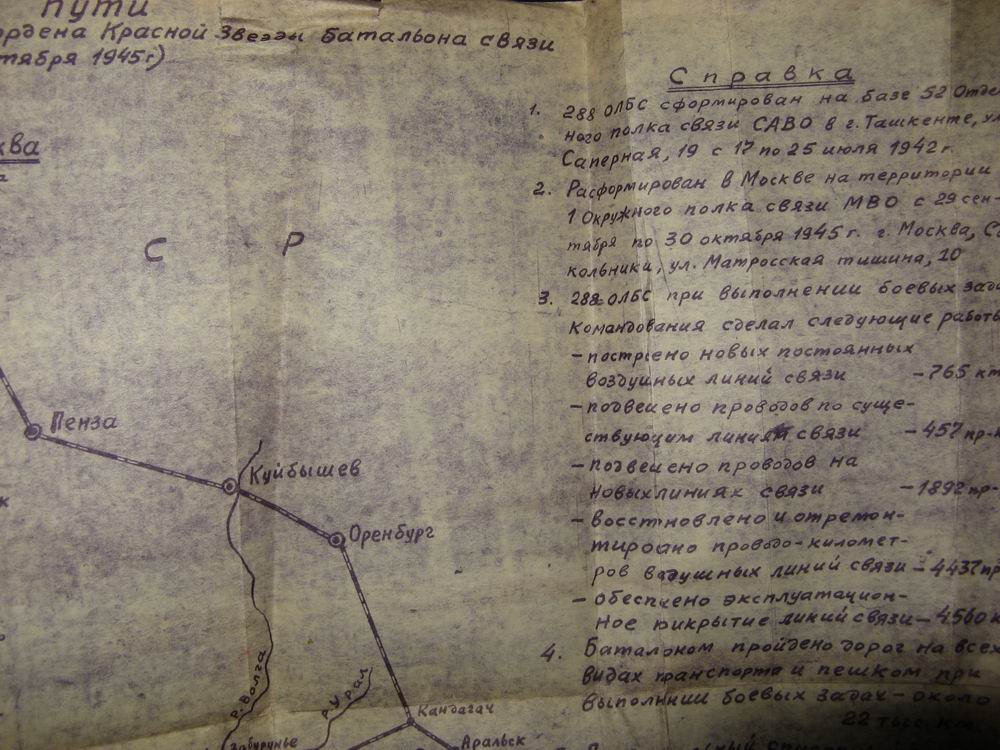 пути
ордена Красной Звезды батальона связи
тября 1945г)
ква
С Р
Пенза
Куйбышев
Оренбург
р. Волга
р. Урал
Кандагач
Аральск
Забурунье
Справка
1. 288 ОЛБС сформирован на базе 52 Отде
ного полка связи САВО в г. Ташкенте, ул
Саперная, 19 с 17 по 25 июля 1942г.
2. Расформирован в Москве на территории
1 Окружного полка связи МВО с 29 сен-
тября по 30 октября 1945г. г. Москва, Со
кольники, ул. Матросская тишина, 10
3. 288 ОЛБС при выполнении боевых зада
командования сделал следующие работы
- построено новых постоянных
воздушных линий связи - 765 км
- подвешено проводов по суще-
ствующим линиям связи - 457 пр-к
- подвешено проводов на
новых линиях связи - 1892 пр-
- восстновлено и отремон-
тировано проводо-километ-
ров воздушных линий связи - 4437 пр
- обеспечено эксплуатацион-
ное рикрытие линий связи - 4560 к
4. Баталоном пройдено дорог на всех
видах транспорта и пешком при
выполннии боевых задач - около
22 тыс. км